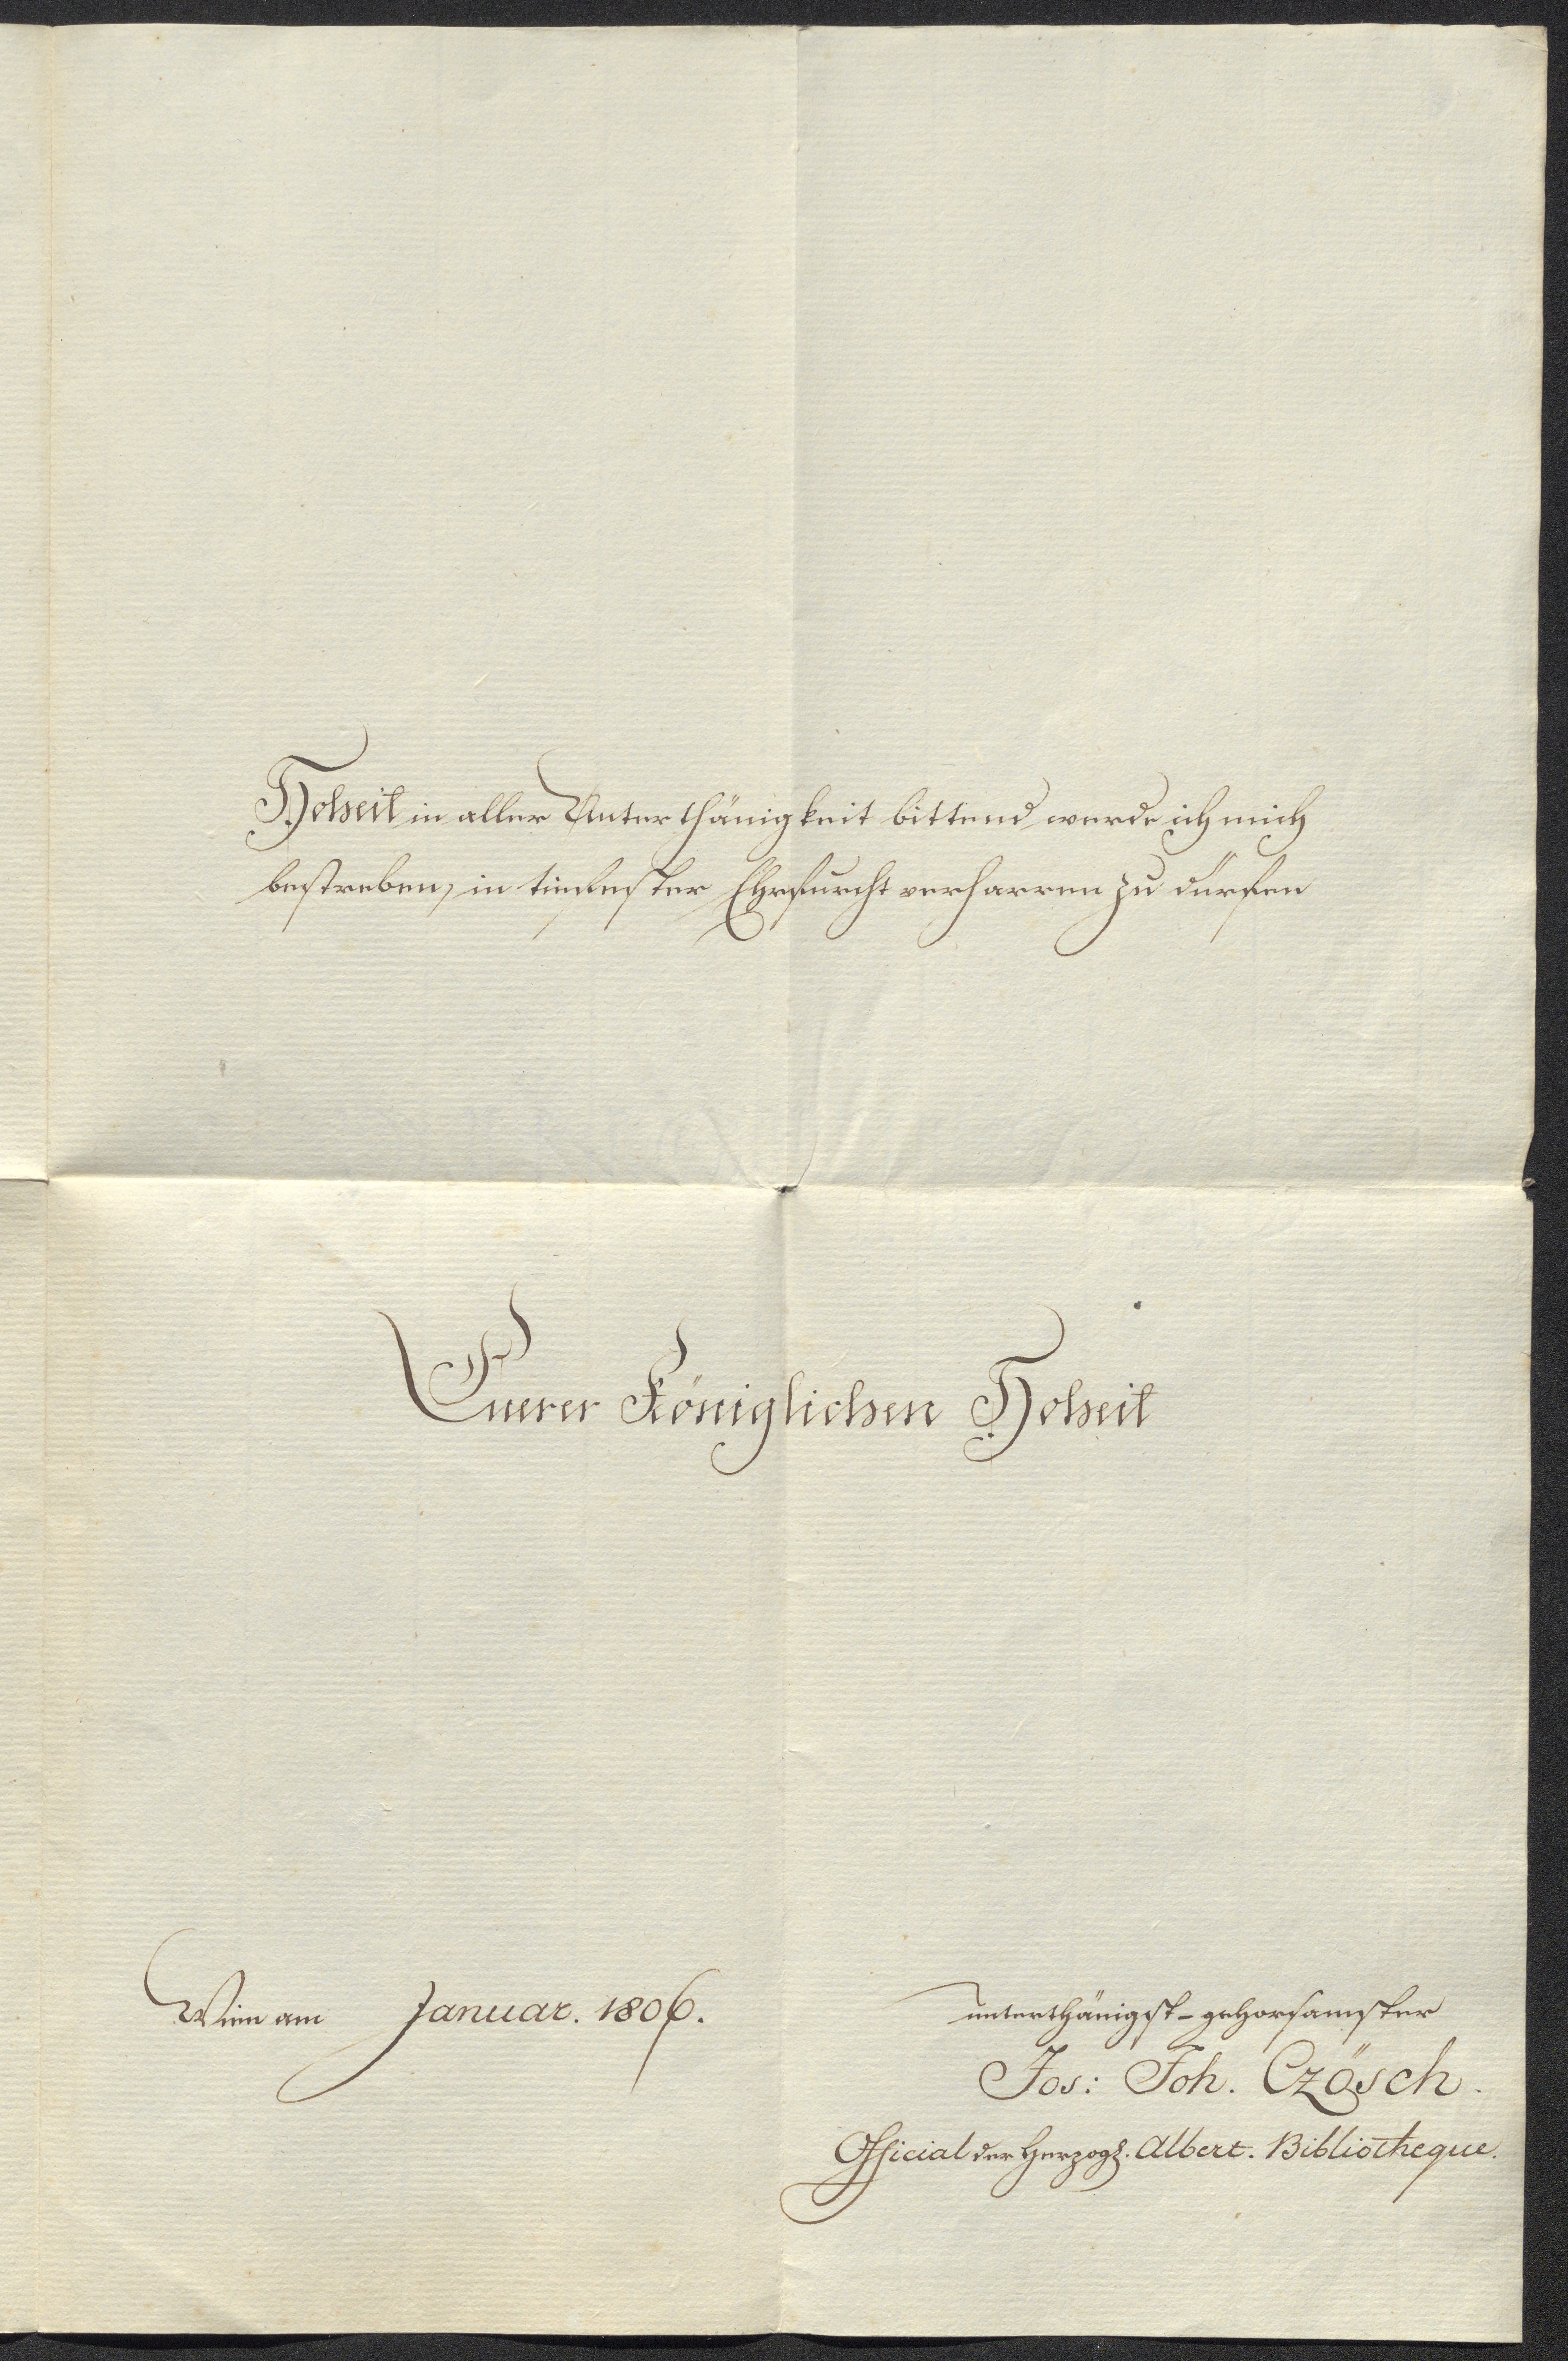 Hoheit in aller Unterthänigkeit bittend werde ich mich
bestreben, in tiefester Ehrfurcht verharren zu dürfen
Euerer Königlichen Hoheit
Wien am Januar. 1806.
unterthänigst-gehorsamster
Jos: Joh. Czösch.
Official der Herzogl. Albert. Bibliotheque.